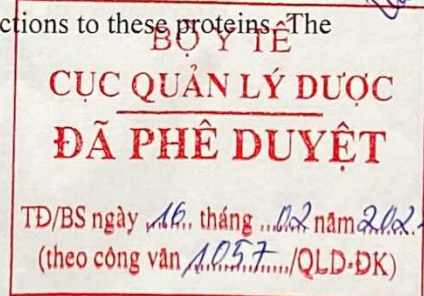 ctions to these proteins. The
BỘ Y TẾ
CỤC QUẢN LÝ DƯỢC
ĐÃ PHÊ DUYỆT
TĐ/BS ngày 16 tháng 02 năm 202
(theo công văn 1057/QLD-ĐK)